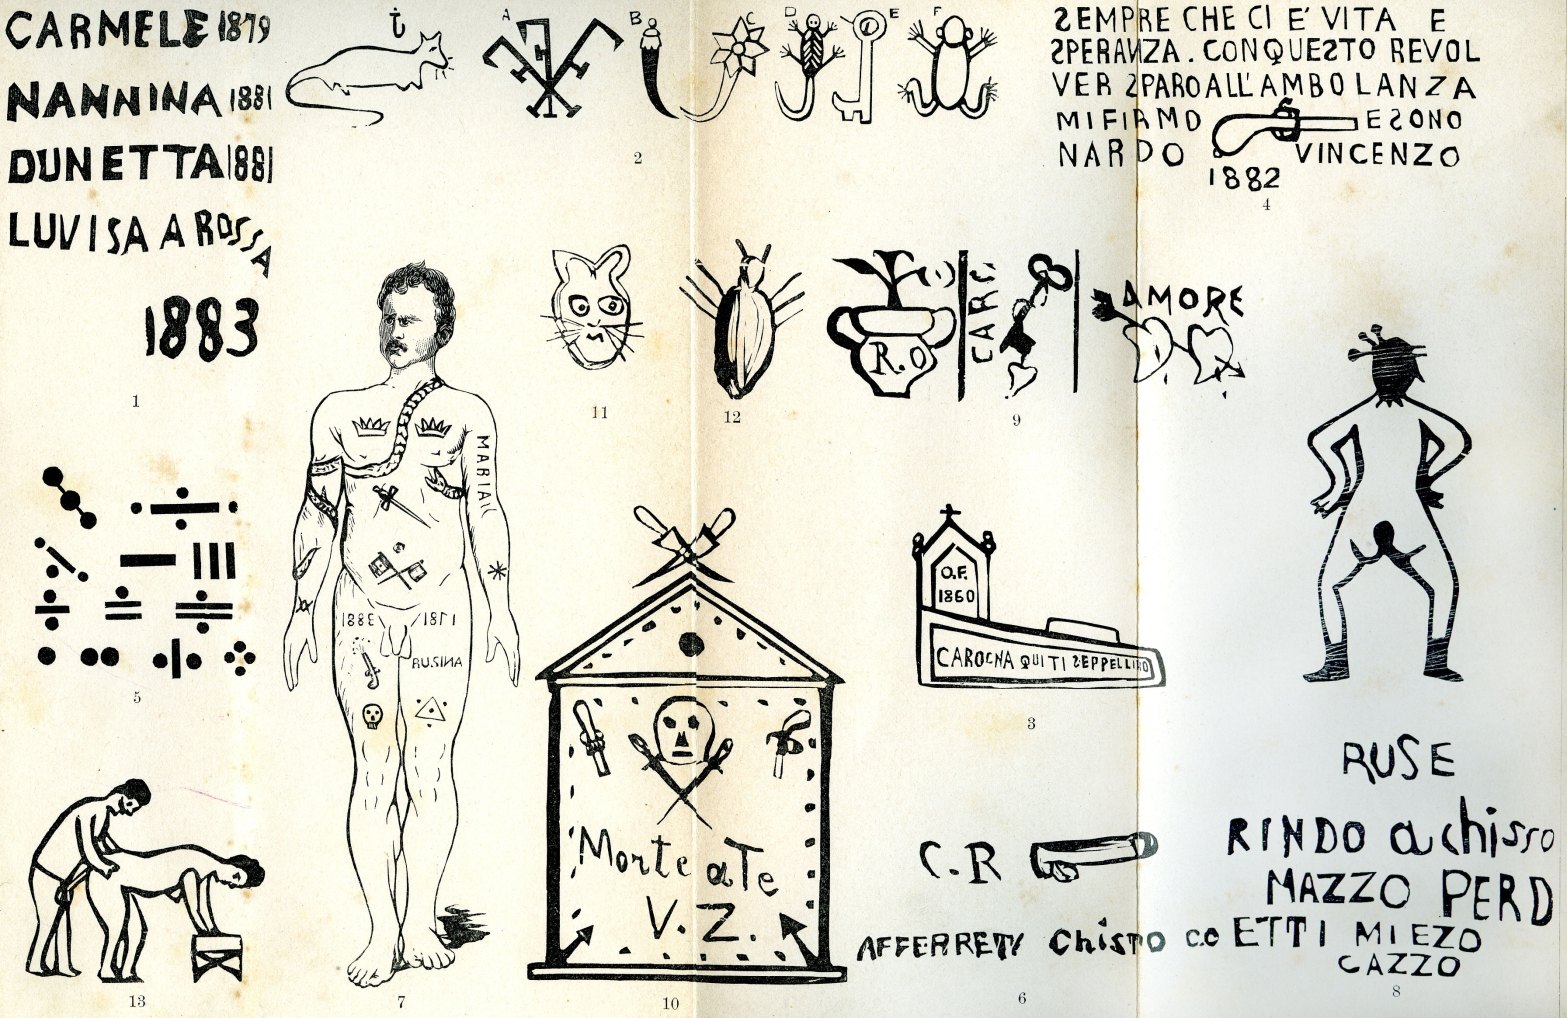 CARMELE 1879
NANNINA 1881
DUNETTA 1881
LUVISA A ROSSA
1883
1
A B C D E F
2
SEMPRE CHE CI E' VITA E
SPERANZA. CONQUESTO REVOL
VER SPARO ALL'AMBOLANZA
MI FIRMO E SONO
NARDO VINCENZO
1882
4
11
12
R.O
CARO
AMORE
9
MARIA
1883 1871
RUSINA
7
5
O.F.
1860
CAROGNA QUI TI SEPPELLIRO
3
Morte a Te
V. Z.
10
C.R
AFFERRETI Chisto
6
RUSE
RINDO a chisso
MAZZO PERD
ETTI MIEZO
CAZZO
8
13